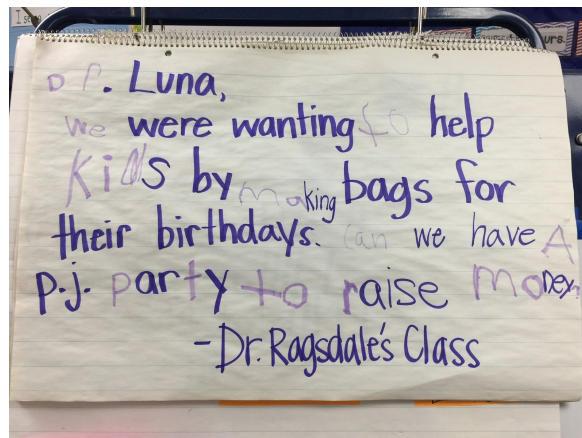 I se
urs.
Dr. Luna,
We were wanting to help
Kids by making bags for
their birthdays. Can we have A
p.j. party to raise money?
-Dr. Ragsdale's Class